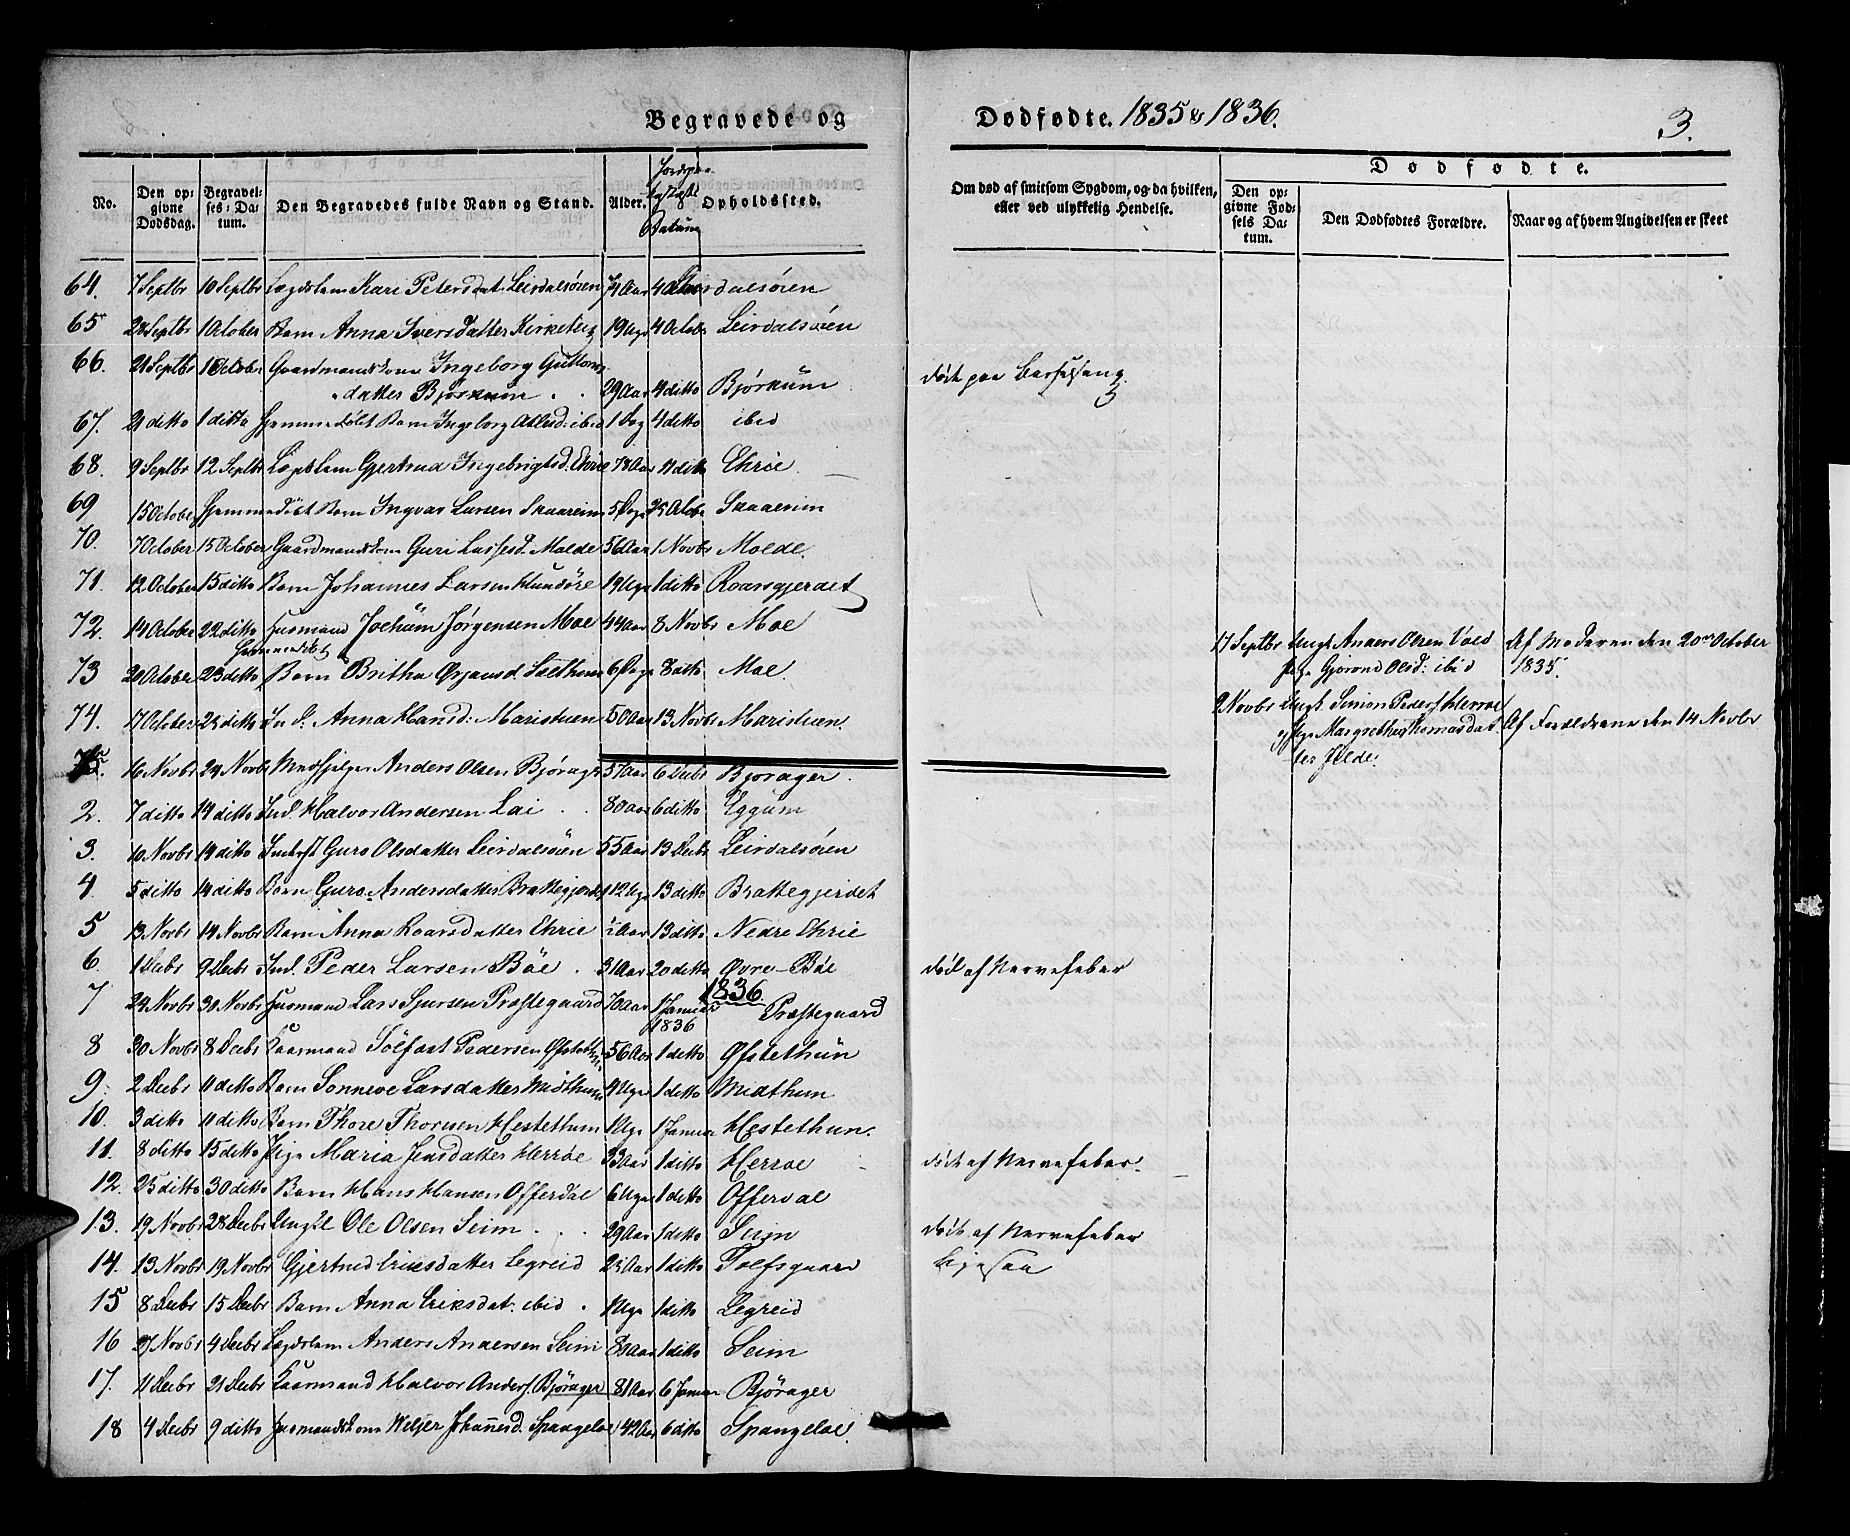 Begravede og
Dødfødte. 1835 & 1836.
3.
No.
Den opgivne Dødsdag.
Begravelses-Datum.
Den Begravedes fulde Navn og Stand.
Alder.
Datum
Opholdssted.
Om død af smitsom Sygdom, og da hvilken, eller ved ulykkelig Hendelse.
Dødfødte.
Den opgivne Fødsels Datum.
Den Dødfødtes Forældre.
Naar og af hvem Angivelsen er skeet
64. 7 Septbr 10 Septbr Lægdslem Kari Petersdat. Leirdalsören 74 Aar Leirdalsören
65 Septbr 1 October Barn Anna Iversdatter 19 Uger 4 Octobr Leirdalsören
66. 21 Septbr October Gaardmandskone Ingeborg
datter Bjørkum 29 Aar 4 ditto Bjørkum død paa Barselseng.
67. 21 ditto 1 ditto Hjemmedøbt Barn Ingeborg ibid 1 Dag 4 ditto ibid
68. 9 Septbr 12 Septbr Lægdslem Gjertrud Ingebrigtsd. Ehrie 78 Aar 11 ditto Ehrie
69 15 October Hjemmedöbt Barn Ingvar Larsen Skaareim 5 Dage 25 Octobr Skaareim
70. 7 October 15 October Gaardmandskone Guri Lassesd. Molde 56 Aar 1 Novbr Molde.
71. 12 October 15 ditto Barn Johannes Larsen 19 Uger 1 ditto Roarsgjerdet
72. 14 October 22 ditto Huusmand Jochum Jørgensen Moe 44 Aar 8 Novbr Moe
17 Septbr Ungk. Anders Olsen Vold Af Moderen den 20de October
Hjemmedöbt
73 20 October 23 ditto Barn Britha Ørjansd. 6 Dage 8 ditto Moe.
Pige Gjørond Olsd: ibid 1835.
74. 17 October 25 ditto Ind. Anna Hansd: Maristuen 50 Aar 13 Novbr Maristuen.
2 Novbr Ungk. Simon Peders. Herroe
og Pige Margrethe Thomasdat Af Forældrene den 14 Novbr
ter
16 Novbr 24 Novbr Medhjelper Anders Olsen Bjørager 57 Aar 6 Decbr Bjørager.
2. 7 ditto 14 ditto Ind. Halvor Andersen Lai 80 Aar 6 ditto Eggum
3. 10 Novbr 14 ditto Inderst Guro Olsdatter Leirdalsören 55 Aar 13 Decbr Leirdalsören
4. 5 ditto 14 ditto Barn Guro Andersdatter Brattegjerdet 12 Uger 13 ditto Brattegjerdet
5 13 Novbr 14 Novbr Barn Anna Roarsdatter Ehrie ½ Aar 13 ditto Nedre Ehrie
6. 1 Decbr 9 Decbr Ind. Peder Larsen Böe 31 Aar 20 ditto Øvre-Böe død af Nervefeber
1836.
7 24 Novbr 30 Novbr Huusmand Lars Sjursen Præstegaard 70 Aar 1 Januar Præstegaard
1836
8 30 Novbr 8 Decbr Kaarmand Sölfast Pedersen Øfstethun 56 Aar 1 ditto Øfstethun
9. 2 Decbr 11 ditto Barn Sonneve Larsdatter Midthun 4 Uger 1 ditto Midthun
10. 3 ditto 11 ditto Barn Thore Thoresen Hestethun 1 Uge 1 Januar Hestethun.
11. 8 ditto 15 ditto Pige Maria Jensdatter Herroe 33 Aar 1 ditto Herroe død af Nervefeber.
12. 25 ditto 30 ditto Barn Hans Hansen Offerdal 6 Uger 1 ditto Offerdal
13. 19 Novbr 28 Decbr Ungk. Ole Olsen Seim 29 Aar 1 ditto Seim død af Nervefeber
14. 13 Novbr 19 Novbr Gjertrud Eriksdatter Legreid 25 Aar 1 ditto ligesaa
15 8 Decbr 15 Decbr Barn Anna Eriksdat. ibid. 1 Uge 1 ditto Legreid
16 27 Novbr 4 Decbr Lægdslem Anders Andersen Seim Aar 1 ditto Seim
17. 11 Decbr 21 Decbr Kaarmand Halvor Anders. Bjørager 81 Aar 6 Januar Bjørager
18 4 Decbr 9 ditto Huusmandskone Johannesd. Spangeloe 42 Aar 6 ditto Spangeloe.